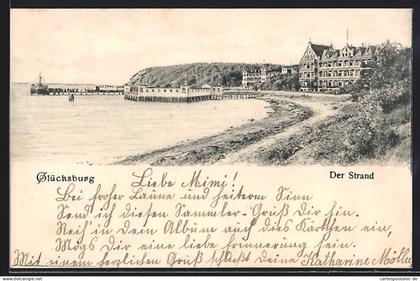 Glücksburg
Der Strand
Liebe Mimi!
Bei froher Laune und heiterm Sinn
Send ich diesen Sammler-Gruß Dir hin.
Reih' in Dein Album auch dies Kärtchen ein,
Mög's Dir eine liebe Erinnerung sein.
Mit einem herzlichen Gruß schließt Deine Katharine Möller